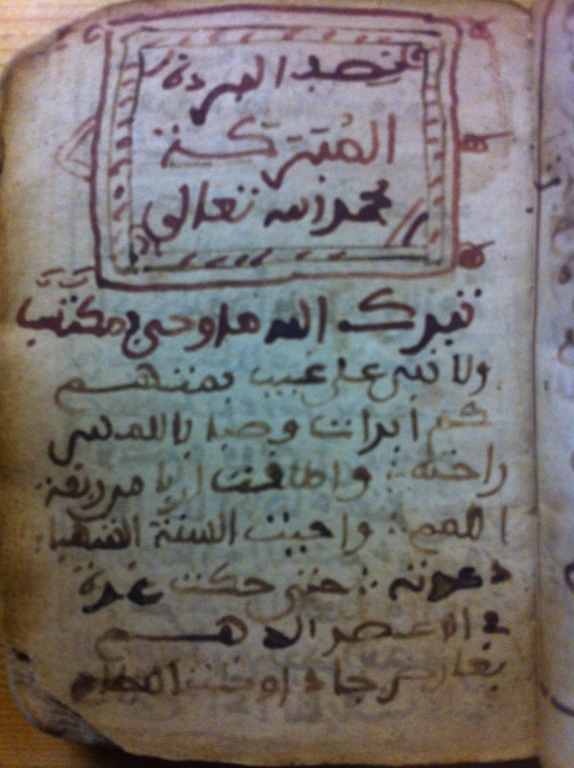 البردة
المُبَتركة
بحمد الله تعالى
تبرك الله ما وحي بمكتسب
ولا نبي على غيب بمتهم
كم ابرات وصبا باللمس
راحته ∴ واطلقت اربا من ربقة
اللمم ∴ واحيت السنة الشهباء
دعوته ∴ حتى حكت غرة
في الاعصر الدهم
بعارض جاد او خلت البطاح